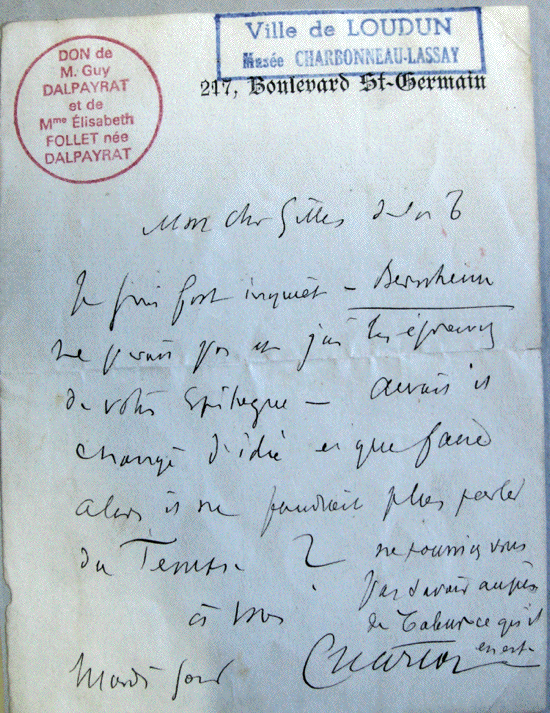 Ville de LOUDUN
Musée CHARBONNEAU-LASSAY
DON de
M. Guy
DALPAYRAT
et de
Mme Élisabeth
FOLLET née
DALPAYRAT
217, Boulevard St-Germain
Mon cher Gilles
Je suis fort inquiet — Bernheim
ne pas les épreuves
de votre Epilogue — aurait il
changé d'idée et que faire
alors il ne faudrait plus parler
du Temps ?
à vous
Mardi soir
ne pourriez vous
pas savoir auprès
de ce qu'il
en est